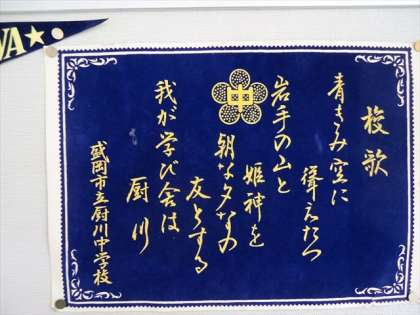 校歌
青きみ空に
聳えたつ
岩手の山と
姫神を
朝な夕なの
友とする
我が学び舎は
厨川
盛岡市立厨川中学校
中
WA